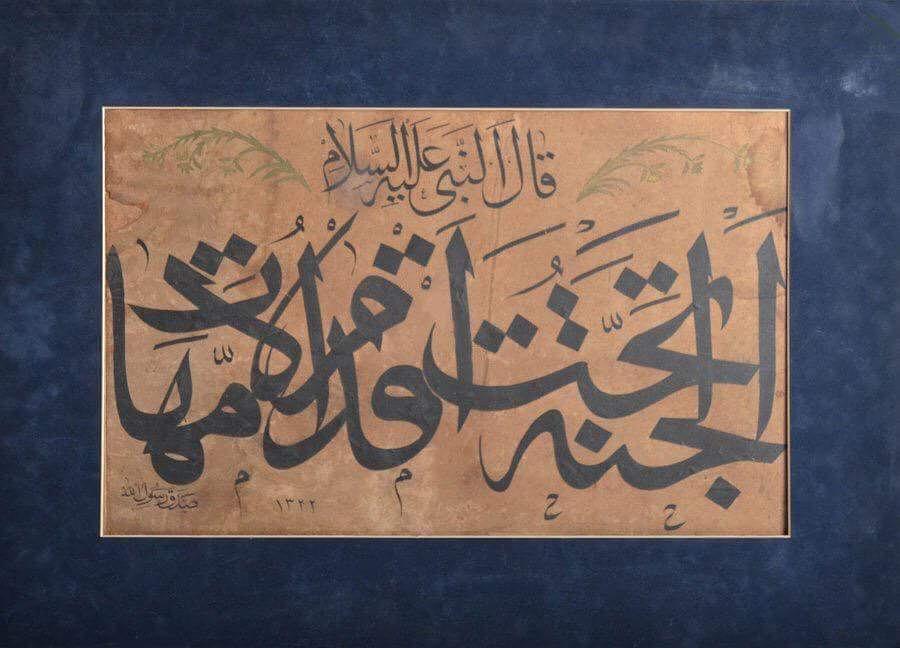 قال النبي عليه السلام
الجنة تحت أقدام الأمهات
صدق رسول الله
١٣٢٢